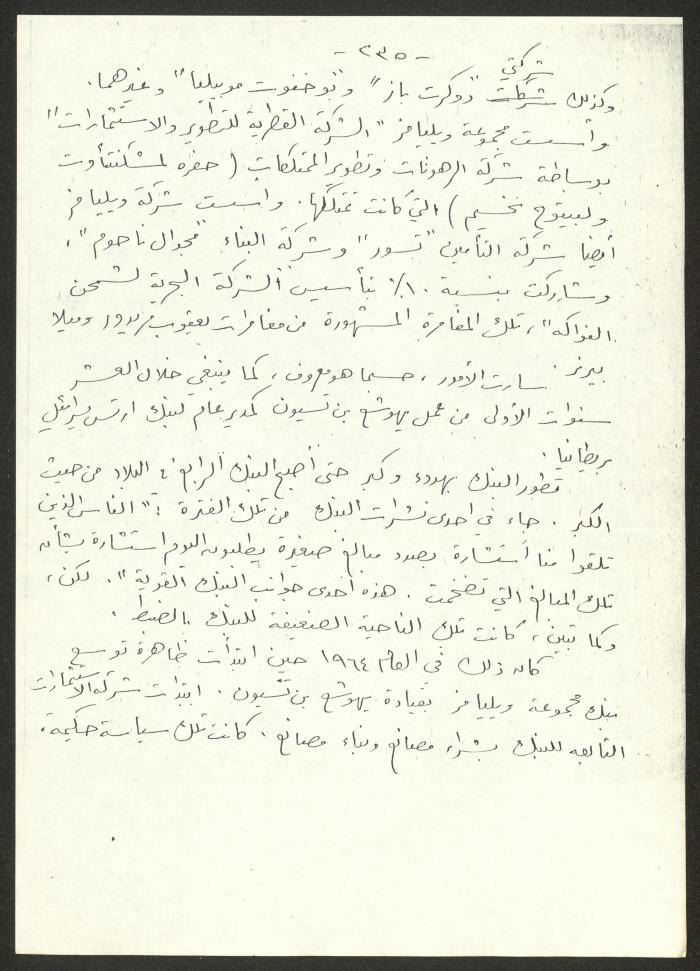 - ٢٣٥ -
شركتي
وكذلك شركات "دوكرت باز" و"بوخفوت موبيليا" وغيرهما.
وأسست مجموعة ويليامز "الشركة القطرية للتطوير والاستثمارات"
بوساطة شركة الرهونات وتطوير الممتلكات (حفره لمشكنتأوت
ولبيتوح نخسيم) التي كانت تمتلكها. واسست شركة ويليامز
أيضا شركة التأمين "تسور" وشركة البناء "مجدال ناحوم"،
وشاركت بنسبة ١٠٪ بتأسيس "الشركة البحرية لشحن
الفواكه"، تلك المغامرة المشهورة من مغامرات يعقوب وميلا
بيرنر.
سارت الأمور، حسبما هو معروف، كما ينبغي خلال العشر
سنوات الأولى من عمل يهوشع بن تسيون كمدير عام لبنك ارتس يسرائيل
بريطانيا.
تطور البنك بهدوء وكبر حتى أصبح البنك الرابع في البلاد من حيث
الكبر. جاء في احدى نشرات البنك من تلك الفترة: "الناس الذين
تلقوا منا استشارة بصدد مبالغ صغيرة يطلبون اليوم استشارة بشأن
تلك المبالغ التي تضخمت. هذه احدى جوانب البنك القوية". لكن،
وكما تبين، كانت تلك الناحية الضعيفة للبنك بالضبط.
كان ذلك في العام ١٩٦٤ حين ابتدأت ظاهرة توسع
بنك مجموعة ويليامز بقيادة يهوشع بن تسيون. ابتدأت شركة الاستثمارات
التابعه للبنك بشراء مصانع وبناء مصانع. كانت تلك سياسة حكيمة.